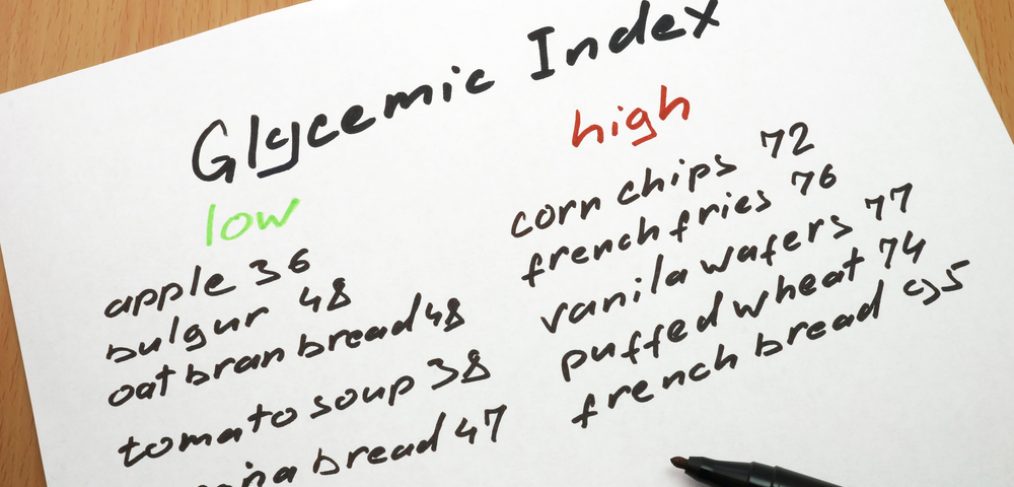 Glycemic Index
low
apple 36
bulgur 48
oat bran bread 48
tomato soup 38
bread 47
high
corn chips 72
french fries 76
vanila wafers 77
puffed wheat 74
french bread 95